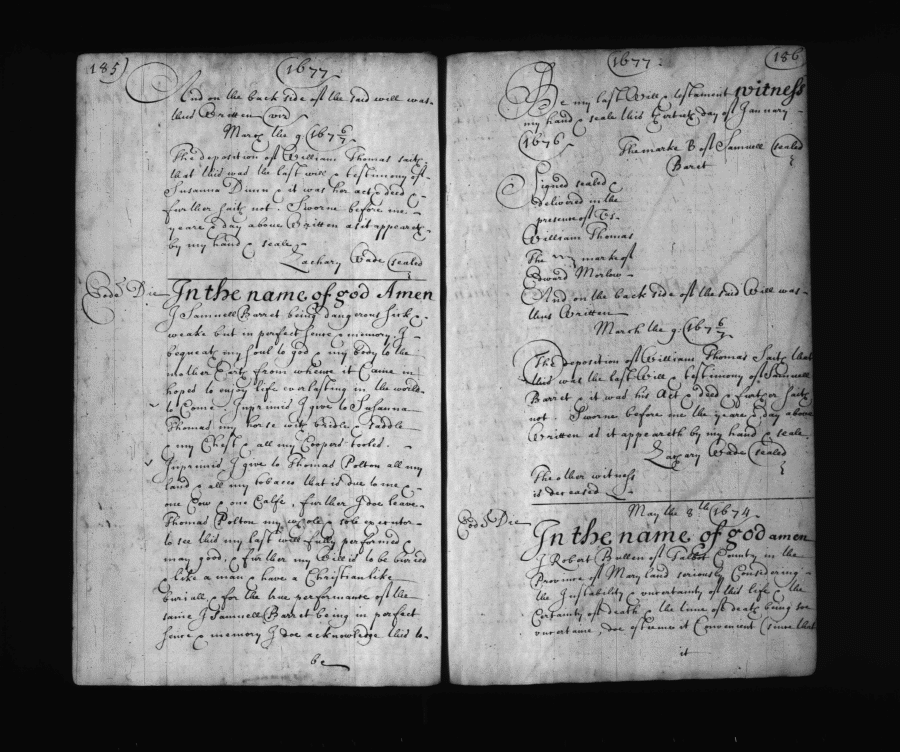 185)
1677
And on the back side of the said will was
thus Written viz
March the 9 (167 6/7
The deposition of William Thomas saith
that this was the last will & testimony of
Susanna Dunn & it was her act & deed &
further saith not. Sworne before me
yeare & day above Written as it appeareth
by my hand & seale
Zachary Wade (sealed
Eodm Die
In the name of god Amen
I Samuell Barret being dangerous sick &
weake but in perfect sence & memory. I
bequeath my soul to god & my body to the
mother Earth from whence it Came in
hopes to enjoy life everlasting in the world
to Come. Inprimis I give to Susanna
Thomas my horse with bridle & saddle
& my Chest & all my Coopers tooles.
Inprimis I give to Thomas Polton all my
land & all my tobacco that is due to me &
one Cow & one Calfe, further I doe leave
Thomas Polton my whole & sole executor
to see this my last will fully performed &
may good, & further my Will is to be buried
like a man & have a Christian like
buriall & for the true performance of the
same I Samuell Barret being in perfect
sence & memory I doe acknowledge this to
be
1677
186
Be my last Will & testament witness
my hand & seale this day of January
(1676
The marke B of Samuell (sealed
Barret
Signed sealed &
delivered in the
presence of Us
William Thomas
The marke of
Edward Morlow
And on the back side of the said Will was
thus Written
March the 9 (167 6/7
The deposition of William Thomas Saith that
this was the last Will & testimony of Samuell
Barret & it was his Act & deed & further saith
not. Sworne before me the yeare & day above
Written as it appeareth by my hand & seale.
Zachary Wade (sealed
The other witness
is deceased
May the 8th (1674
Eodm Die
In the name of god amen
I Robert Bullen of Talbot County in the
Province of Maryland seriously Considering
the Instability & uncertainty of this life & the
Certainty of death & the time of death being soe
uncertaine, doe esteeme it Convenient (since that
it